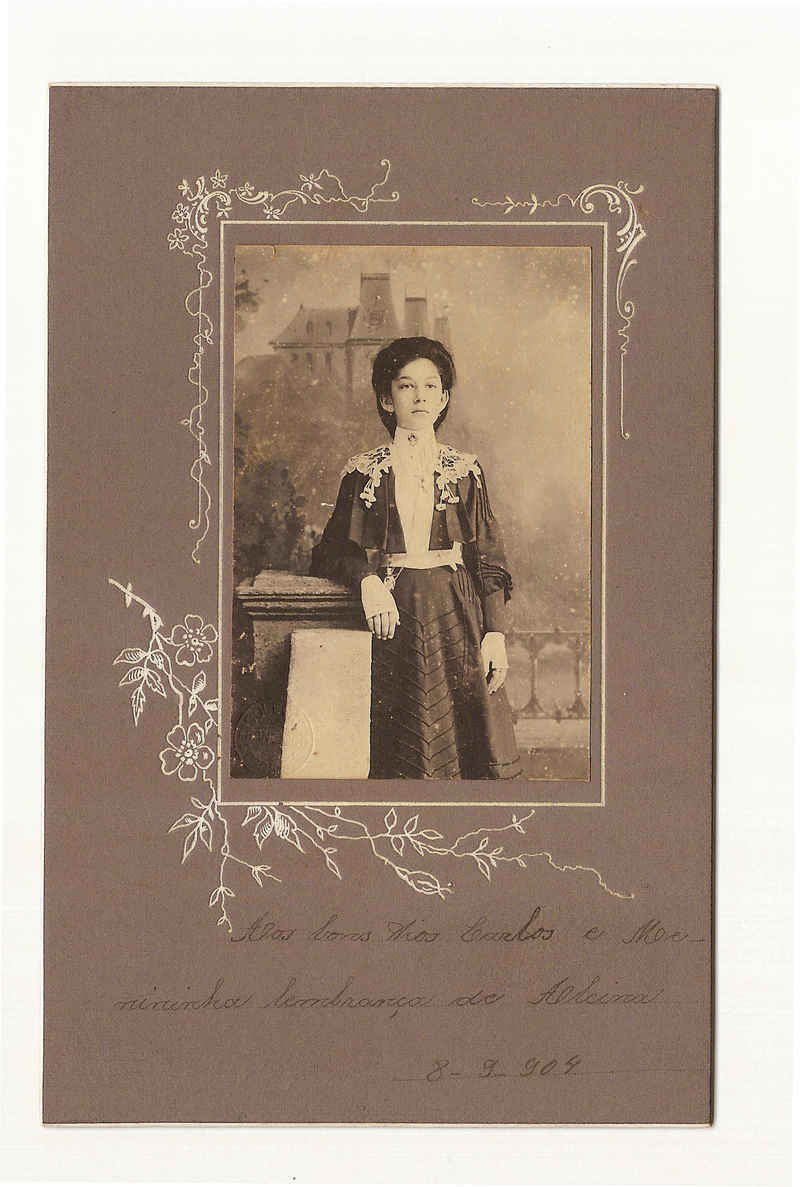 Aos bons Tios Carlos e Me-
nininha lembrança de Alcina
8-9-904